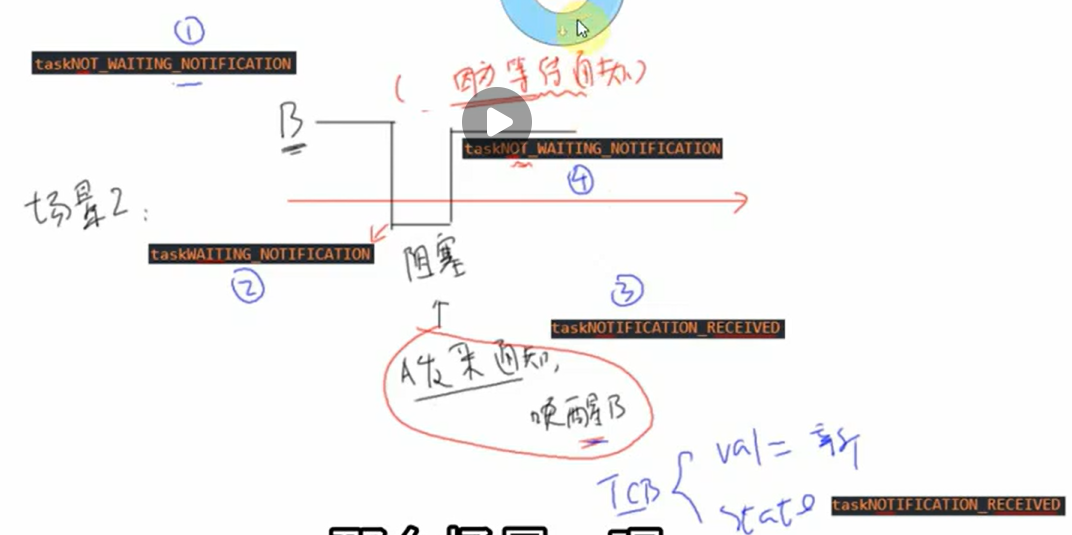 ①
taskNOT_WAITING_NOTIFICATION
(因为等待通知)
B
taskNOT_WAITING_NOTIFICATION
④
场景2:
taskWAITING_NOTIFICATION
阻塞
②
③
taskNOTIFICATION_RECEIVED
A发来通知,
唤醒B
val = 新
TCB
state taskNOTIFICATION_RECEIVED